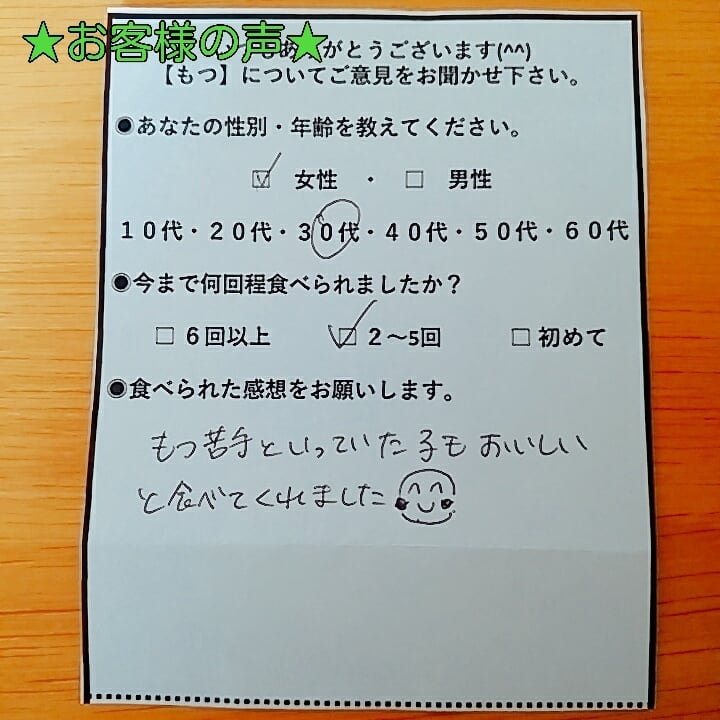 ★お客様の声★
もありがとうございます(^^)
【もつ】についてご意見をお聞かせ下さい。
◉あなたの性別・年齢を教えてください。
☑ 女性 ・ □ 男性
10代・20代・30代・40代・50代・60代
◉今まで何回程食べられましたか？
□ 6回以上 ☑ 2～5回 □ 初めて
◉食べられた感想をお願いします。
もつ苦手といっていた子もおいしい
と食べてくれました